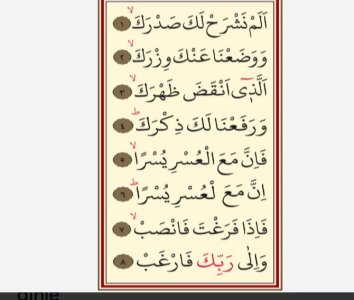 اَلَمْ نَشْرَحْ لَكَ صَدْرَكَ ۙ ﴿١﴾
وَوَضَعْنَا عَنْكَ وِزْرَكَ ۙ ﴿٢﴾
اَلَّذٖٓى اَنْقَضَ ظَهْرَكَ ۙ ﴿٣﴾
وَرَفَعْنَا لَكَ ذِكْرَكَ ۜ ﴿٤﴾
فَاِنَّ مَعَ الْعُسْرِ يُسْرًا ۙ ﴿٥﴾
اِنَّ مَعَ لْعُسْرِ يُسْرًا ۜ ﴿٦﴾
فَاِذَا فَرَغْتَ فَانْصَبْ ۙ ﴿٧﴾
وَاِلٰى رَبِّكَ فَارْغَبْ ﴿٨﴾